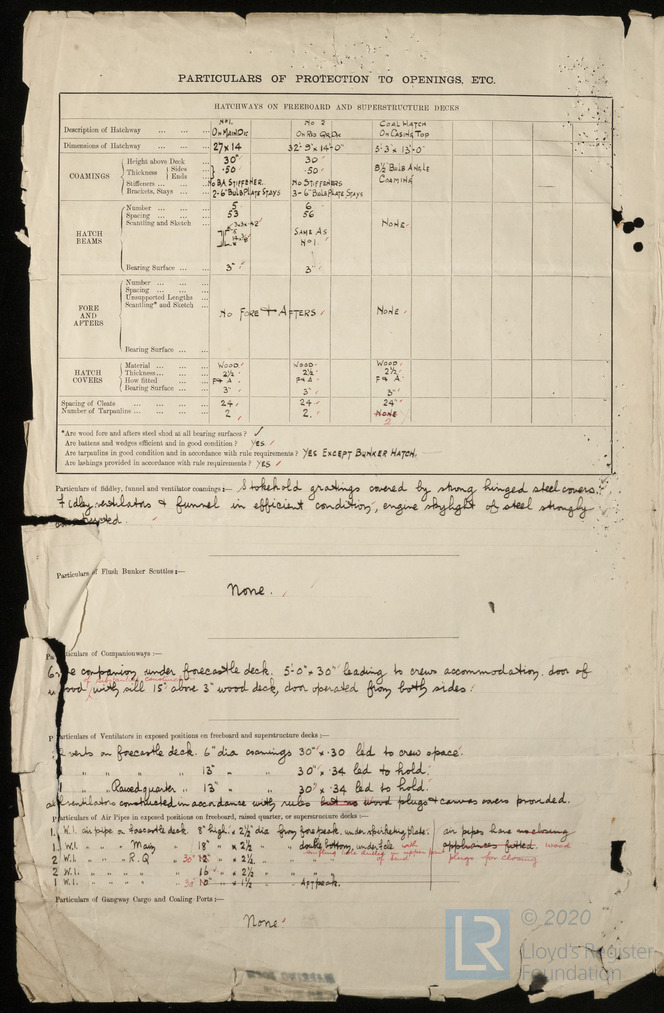 PARTICULARS OF PROTECTION TO OPENINGS, ETC.
HATCHWAYS ON FREEBOARD AND SUPERSTRUCTURE DECKS
Description of Hatchway No1. On Main Dk No 2 On Rsd Qr. Dk Coal Hatch On Casing Top
Dimensions of Hatchway 27 x 14 32'-9" x 14'-0" 5'-3" x 13'-0"
COAMINGS
Height above Deck 30" 30"
Thickness Sides Ends .50 .50 8½" Bulb Angle Coaming
Stiffeners No BA Stiffener. No Stiffeners
Brackets, Stays 2-6" Bulb Plate Stays 3-6" Bulb Plate Stays
HATCH BEAMS
Number 5 6
Spacing 53 56
Scantling and Sketch Same As No1. None.
Bearing Surface 3" 3"
FORE AND AFTERS
Number
Spacing
Unsupported Lengths
Scantling* and Sketch No Fore + Afters None
Bearing Surface
HATCH COVERS
Material Wood Wood Wood
Thickness 2½ 2½ 2½
How fitted F & A F & A F & A
Bearing Surface 3" 3" 3"
Spacing of Cleats 24 24 24"
Number of Tarpaulins 2 2. None 2
*Are wood fore and afters steel shod at all bearing surfaces? ✓
Are battens and wedges efficient and in good condition? Yes
Are tarpaulins in good condition and in accordance with rule requirements? Yes Except Bunker Hatch.
Are lashings provided in accordance with rule requirements? Yes
Particulars of fiddley, funnel and ventilator coamings:— Stokehold gratings covered by strong hinged steel covers.
Fidley ventilators & funnel in efficient condition, engine skylight of steel strongly
constructed.
Particulars of Flush Bunker Scuttles:—
None.
Particulars of Companionways:—
companion under forecastle deck. 5'-0" x 30" leading to crews accommodation. door of
wood with sill 15" above 3" wood deck, door operated from both sides.
Particulars of Ventilators in exposed positions on freeboard and superstructure decks:—
vents on forecastle deck. 6" dia coamings 30" x .30 led to crew space.
" " " " 13" " " 30" x .34 led to hold.
" " Raised quarter " 13" " " 30" x .34 led to hold.
all ventilators constructed in accordance with rules but no wood plugs & canvas covers provided.
Particulars of Air Pipes in exposed positions on freeboard, raised quarter, or superstructure decks:—
1. W.I. air pipe on forecastle deck. 8" high x 2½" dia from forepeak. under spirketing plate. air pipes have no closing
1. W.I. " " Main " 18" x 2½ " " double bottom, under rail with appliances fitted. wood
2 W.I. " " R.Q 30" 12" x 2½ " " plugs for closing
2 W.I. " " " " 16" x 2½ " "
1 W.I. " " " " 30" 10" x 1½ " " Aft peak.
Particulars of Gangway Cargo and Coaling Ports:—
None.
© 2020
LR
Lloyd's Register
Foundation